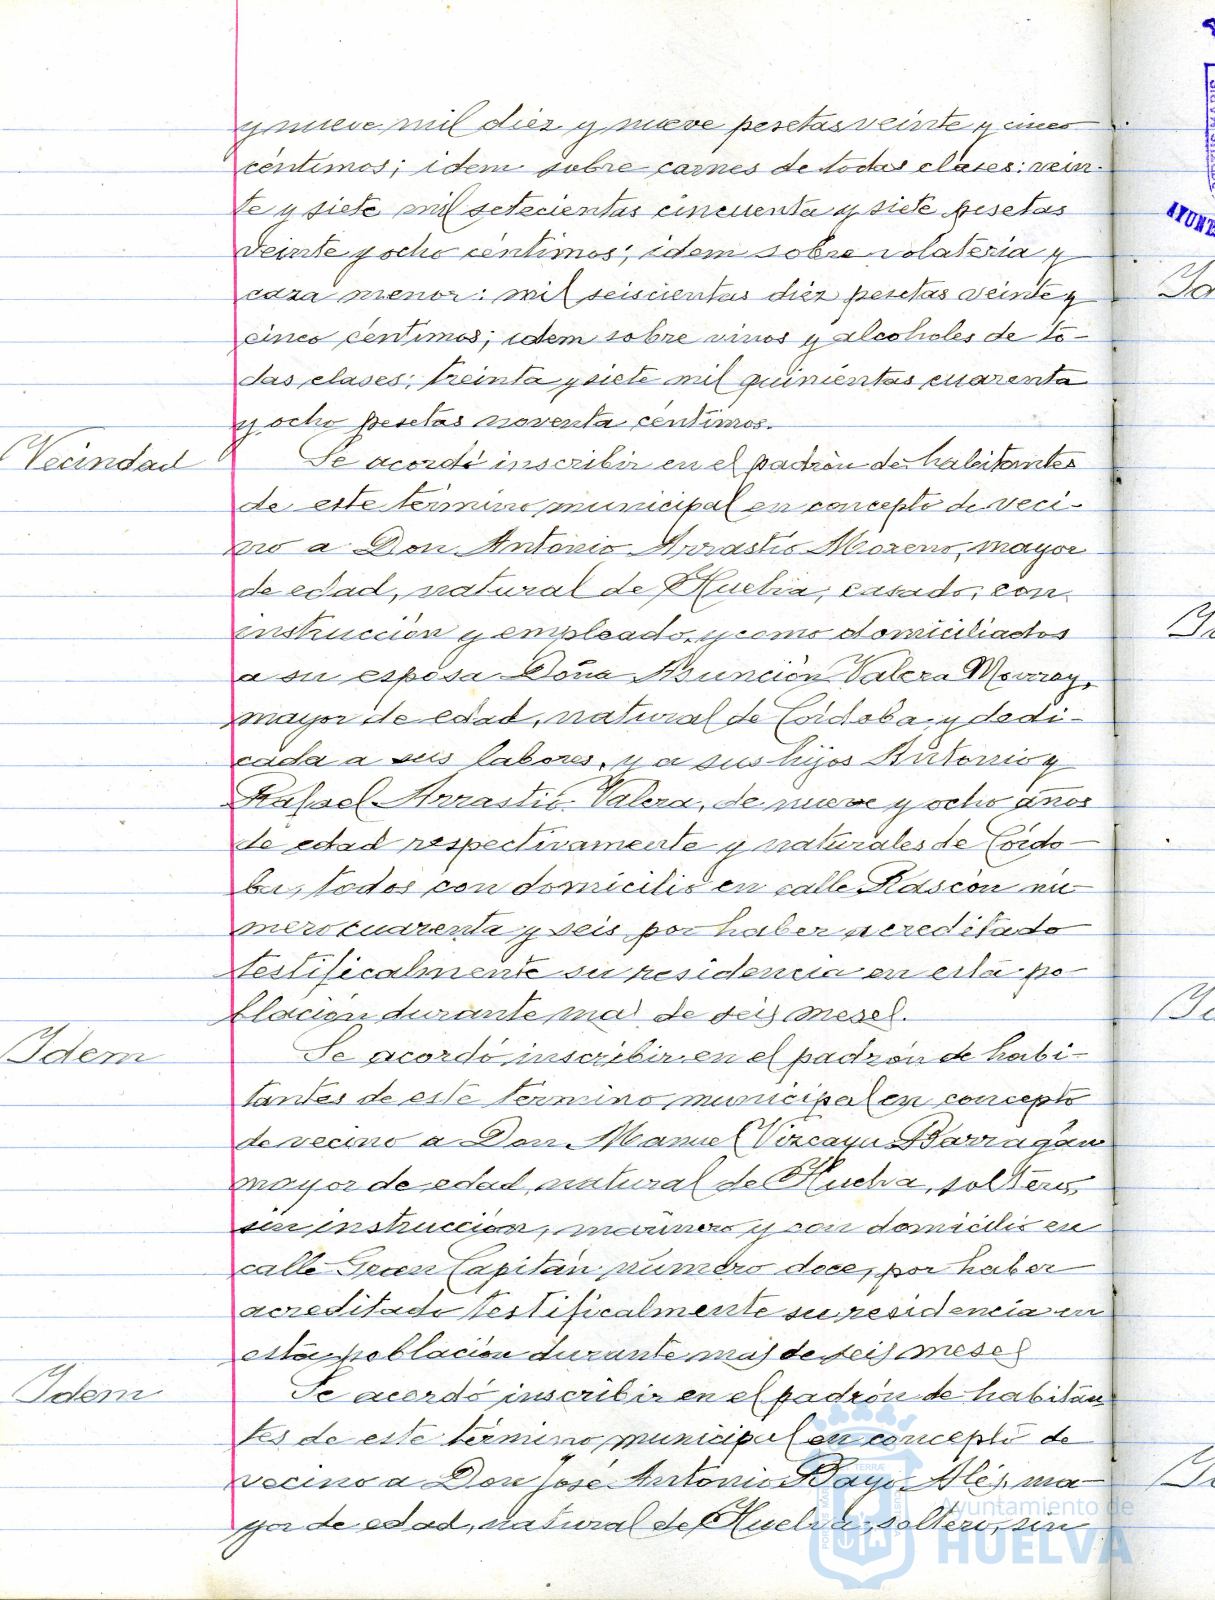 y nueve mil diez y nueve pesetas veinte y cinco
céntimos; idem sobre carnes de todas clases: vein-
te y siete mil setecientas cincuenta y siete pesetas
veinte y ocho céntimos; idem sobre volatería y
caza menor: mil seiscientas diéz pesetas veinte y
cinco céntimos; idem sobre vinos y alcoholes de to-
das clases: treinta y siete mil quinientas cuarenta
y ocho pesetas noventa céntimos.
Vecindad
Se acordó inscribir en el padrón de habitantes
de este término municipal en concepto de veci-
no a Don Antonio Arrastio Moreno, mayor
de edad, natural de Huelva, casado, con
instrucción y empleado, y como domiciliados
a su esposa Doña Asunción Valera
mayor de edad, natural de Córdoba y dedi-
cada a sus labores, y a sus hijos Antonio y
Rafael Arrastio Valera, de nueve y ocho años
de edad respectivamente y naturales de Córdo-
ba, todos con domicilio en calle Rascón nú-
mero cuarenta y seis, por haber acreditado
testificalmente su residencia en esta po-
blación durante mas de seis meses.
Idem
Se acordó inscribir en el padrón de habi-
tantes de este término municipal en concepto
de vecino a Don Manuel Vizcaya Barragán
mayor de edad, natural de Huelva, soltero,
sin instrucción, marinero y con domicilio en
calle Gran Capitán número doce, por haber
acreditado testificalmente su residencia en
esta población durante mas de seis meses
Idem
Se acordó inscribir en el padrón de habitan-
tes de este término municipal en concepto de
vecino a Don José Antonio Bayo Alés, ma-
yor de edad, natural de Huelva, soltero, sin
Ayuntamiento de
HUELVA